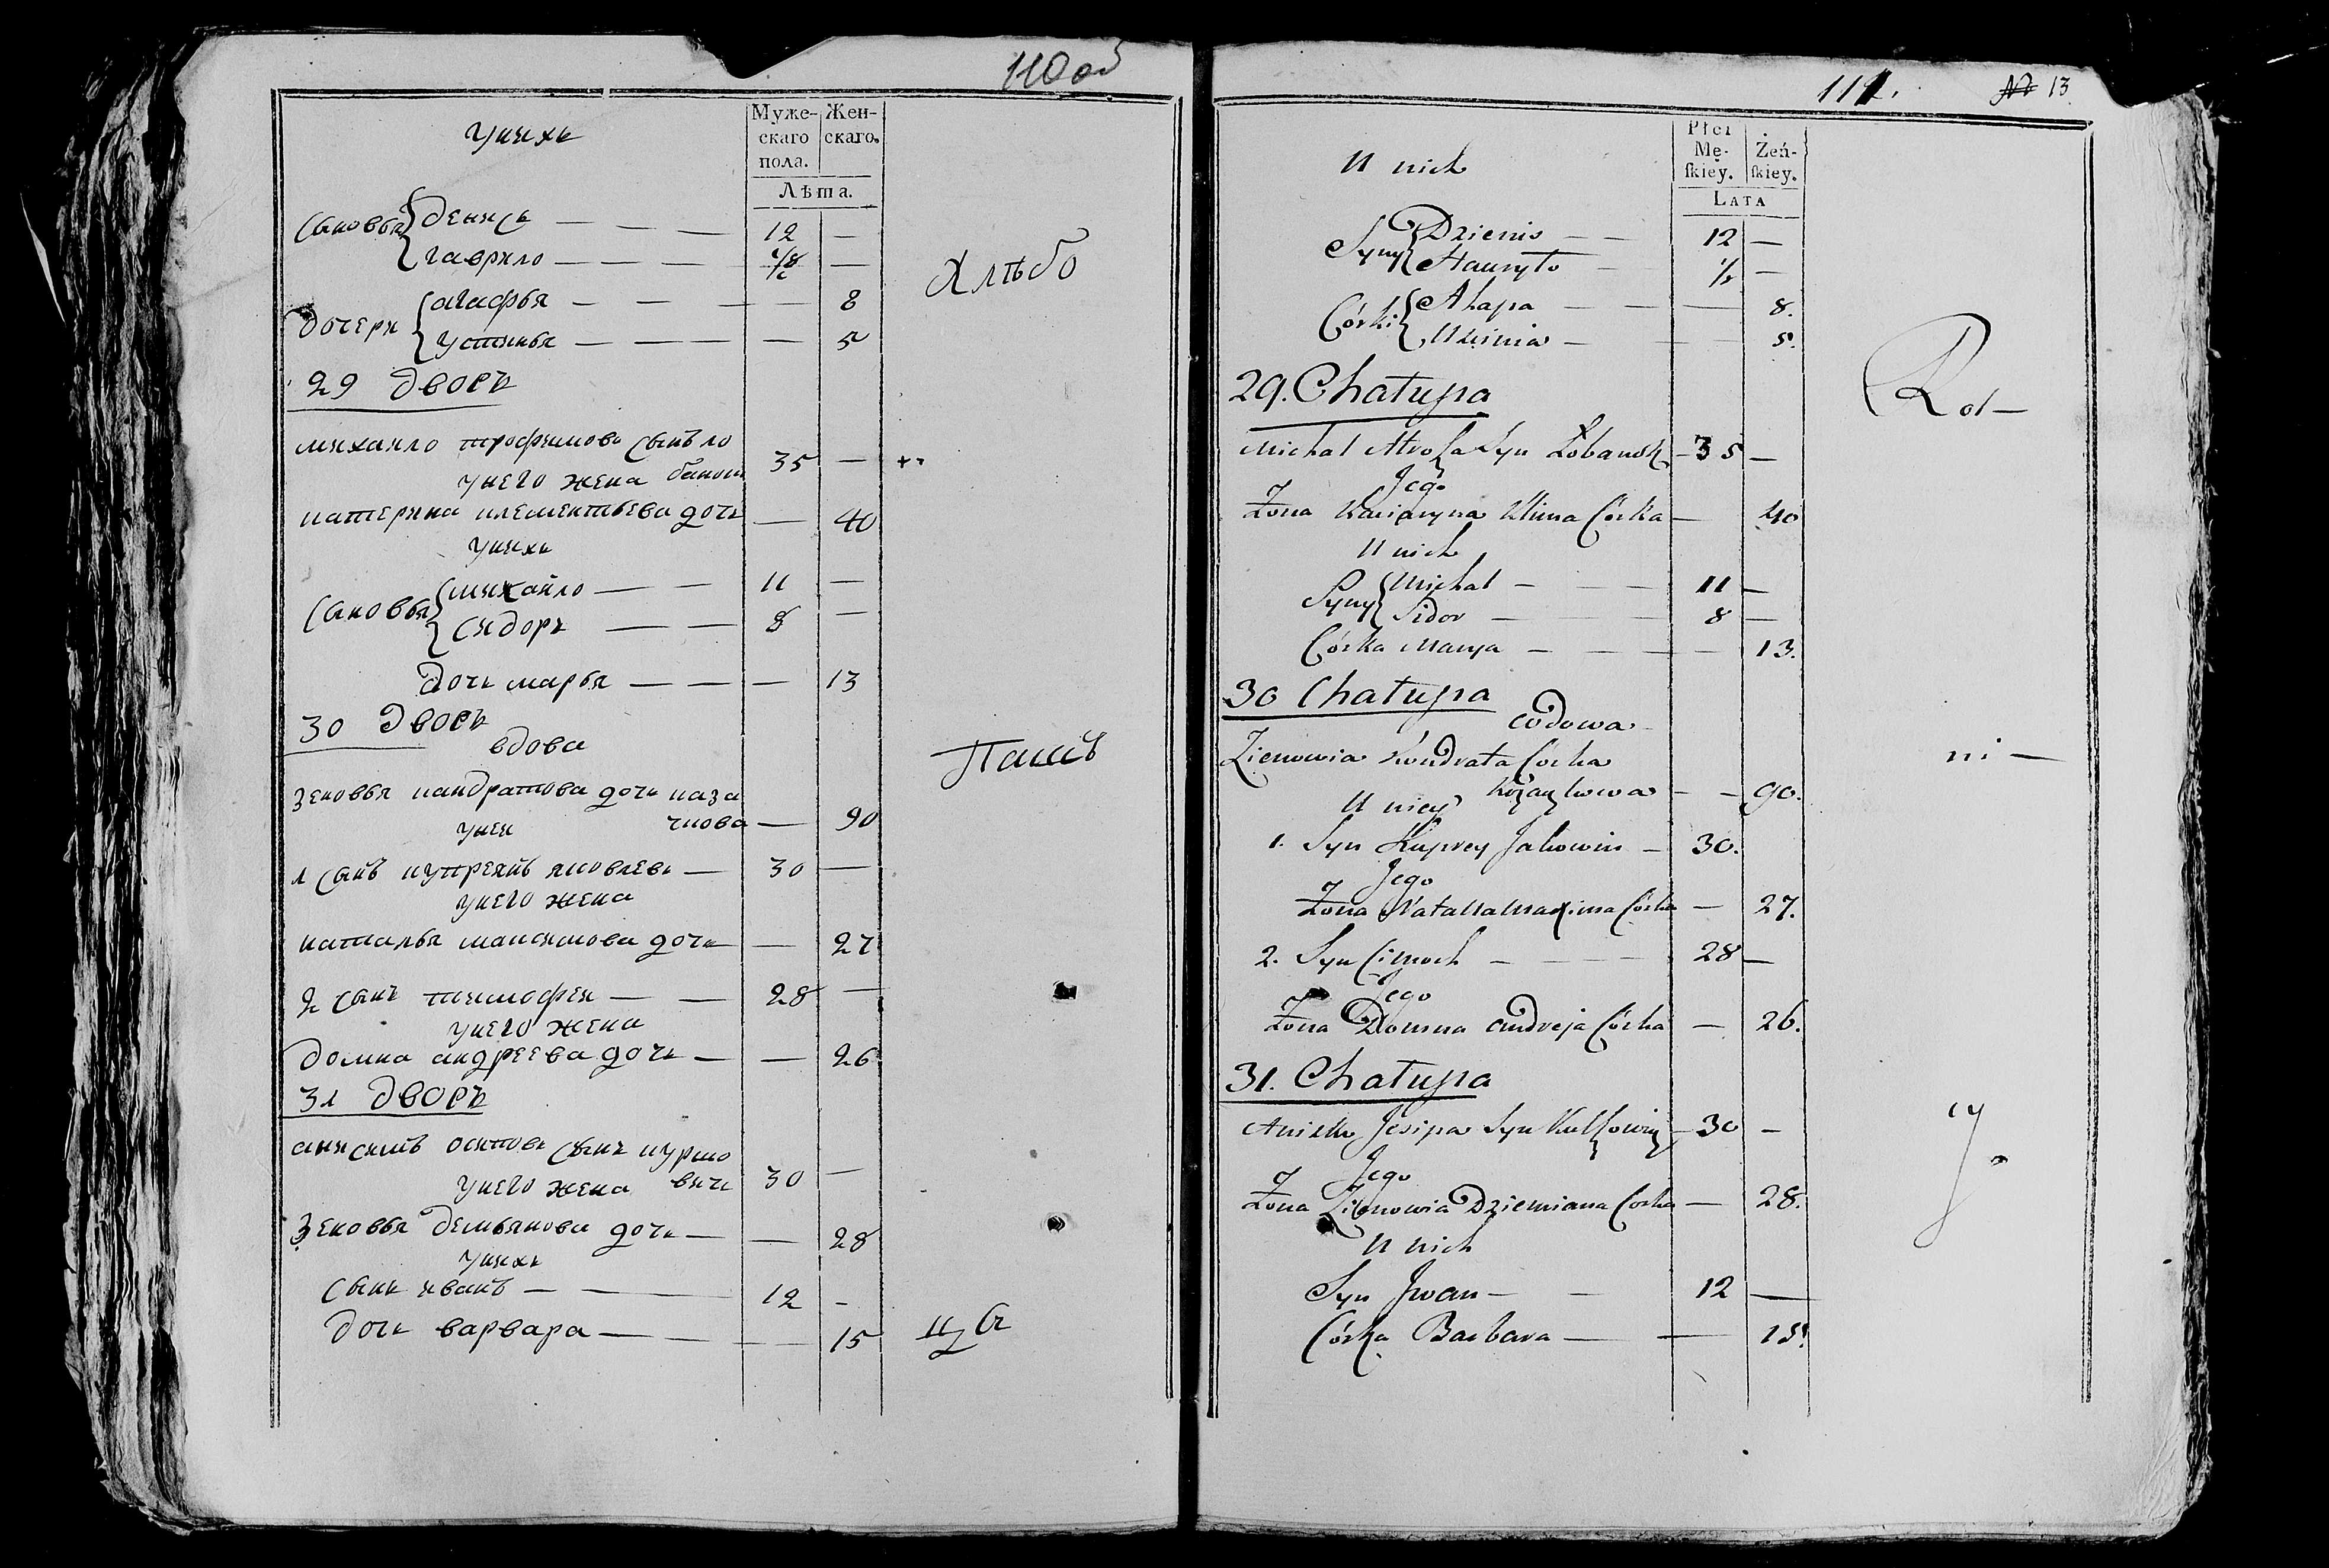 110 об
Муже- Жен-
скаго скаго.
пола.
Лѣта.
у нихъ
Сыновья { Денисъ — — — 12 —
Гаврило — — — —
дочери { агафья — — — — 8
Устинья — — — — 5
Хлѣбо
29 Дворъ
михаило трофимовъ сынъ ло
у него жена банокъ 35 —
катерина клементьева дочь — 40
у нихъ
Сыновья { михайло — — 11 —
Сидоръ — — 8 —
дочь марья — — — 13
30 Дворъ
вдова
Пашъ
зеновья кандратова дочь каза
у ней чкова — 90
1 Сынъ купреянъ яковлевъ — 30 —
у него жена
наталья максимова дочь — 27
2 сынъ тимофеи — — 28 —
у него жена
домна андреева дочь — — 26
31 Дворъ
анисимъ осиповъ сынъ куршо
у него жена вичъ 30 —
Зеновья демьянова дочь — — 28
у нихъ
Сынъ иванъ — — 12 —
дочь варвара — — — 15
цы
111. 13
Płci
Mę- Żeń-
ſkiey. ſkiey.
Lata
U nich
Syny { Dzienis — — 12 —
Hauryło — ½ —
Córki { Ahapa — — — 8.
Uścinia — — — 5.
29. Chałupa
Rol —
Michał Atroſza Syn Łobanok — 35 —
Jego
Żona Kaciaryna Klima Córka — 40
U nich
Syny { Michał — — 11 —
Sidor — — 8 —
Córka Marya — — — 13.
30 Chałupa
wdowa
Zienowia Kondrata Córka
ni —
Kozaczkowa — — 90.
U niey
1. Syn Kuprey Jakowiu — 30.
Jego
Żona Natalla Maxima Córka — 27.
2. Syn Cimoch — — — 28 —
Jego
Żona Domna Andreja Córka — 26.
31. Chałupa
cy
Anisim Jesipa Syn — 30 —
Jego
Żona Zienowia Dziemiana Corka — 28.
U nich
Syn Jwan — — 12 —
Córka Barbara — — 15.